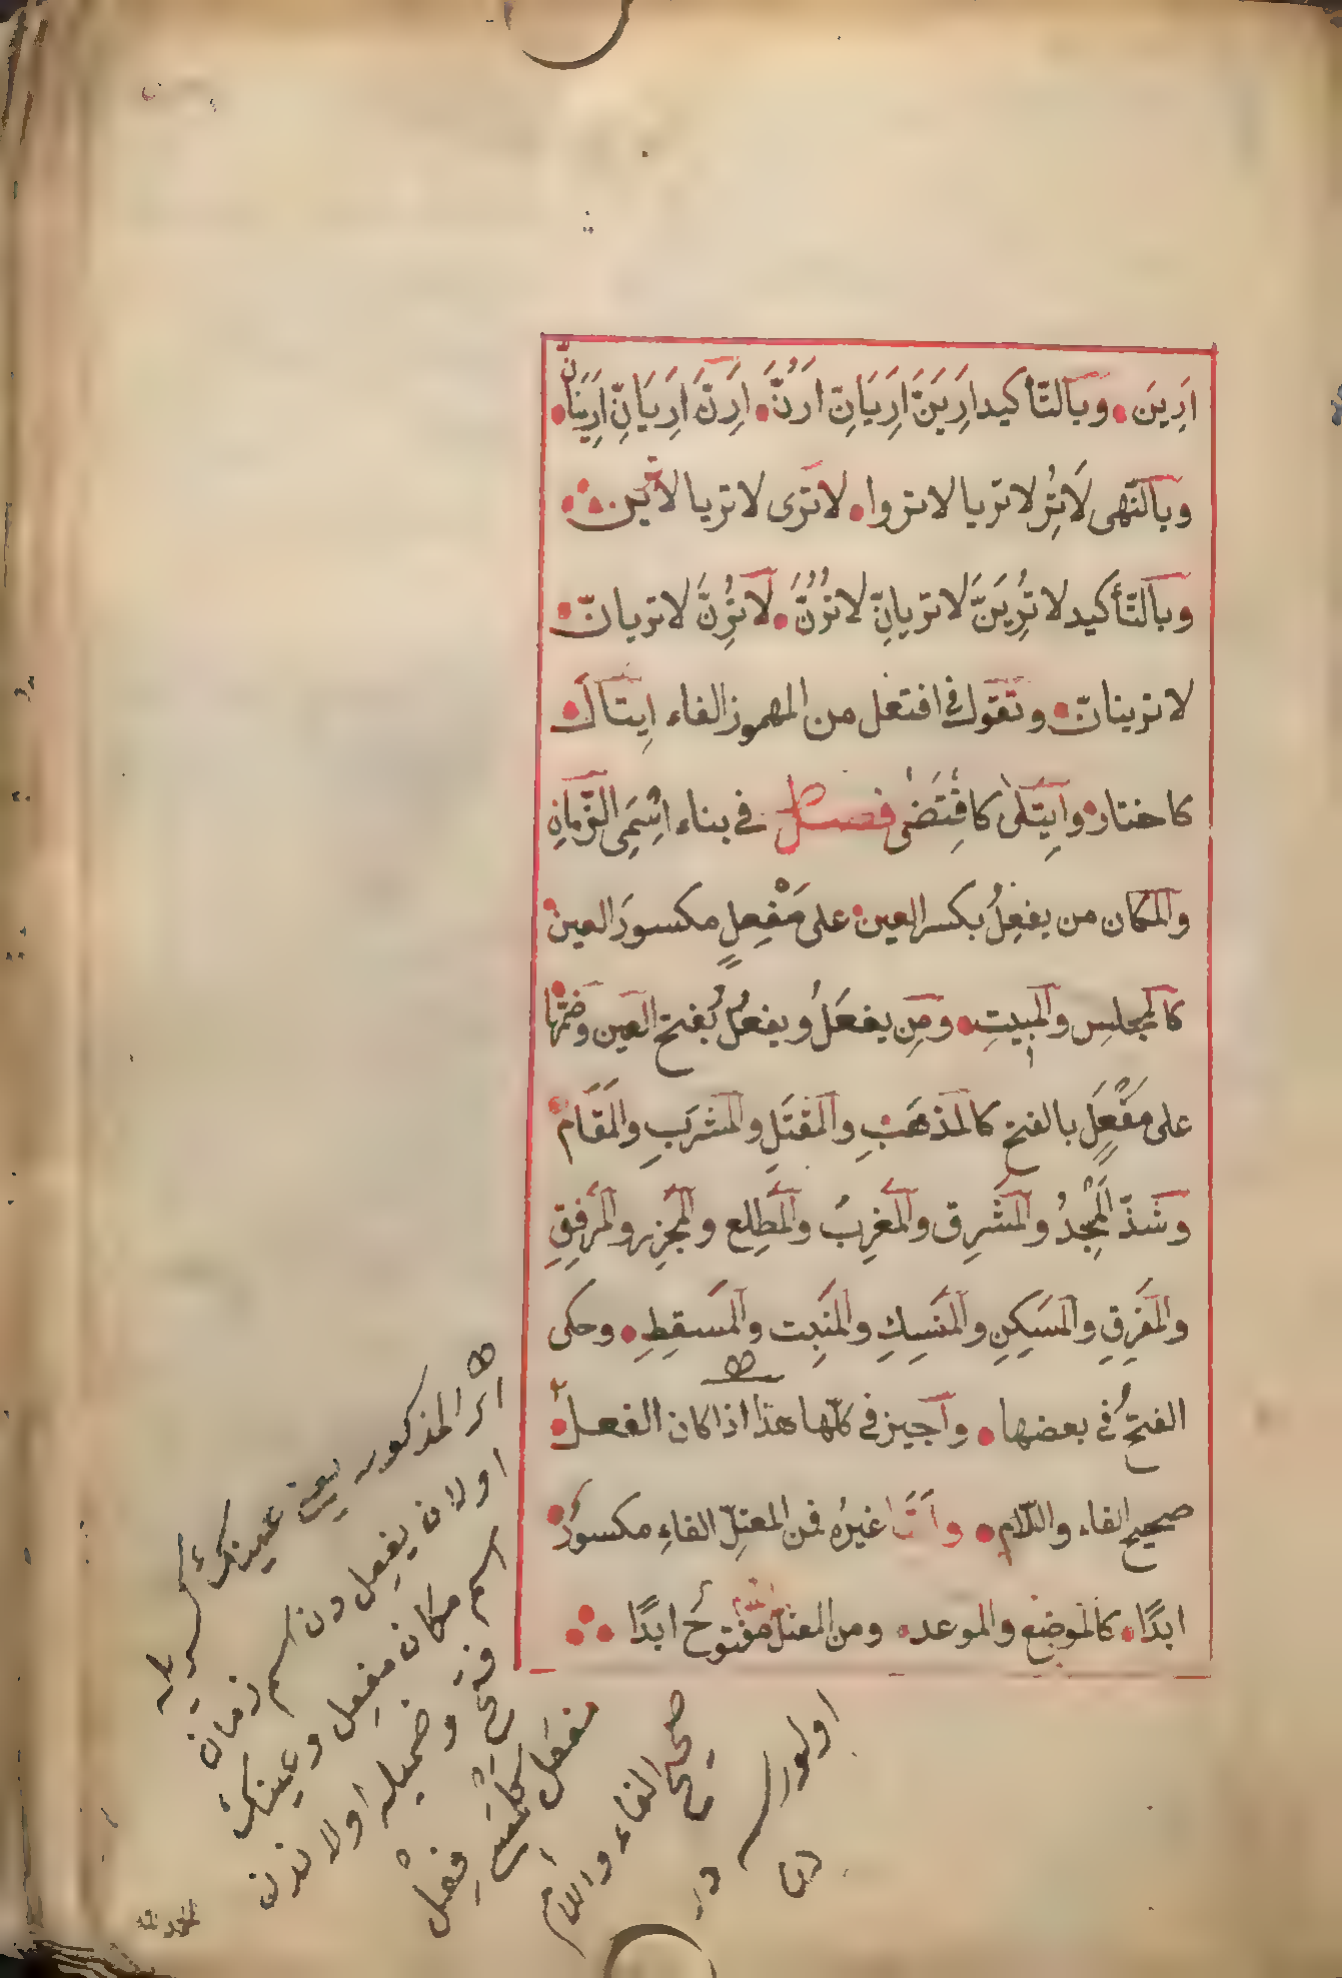 اَرِينَ • وبالتّأكيد اَرِيَنَّ اَرِيَانِّ اَرُنَّ • اَرِنَّ اَرِيَانِّ اَرِينَانِّ •
وبالنّهى لَاتُرِ لاتريا لاتروا • لاتَرى لاتريا لاترين
وبالتّأكيد لاتُرِيَنَّ لَاتريانِّ لاتُرُنَّ • لَاتُرِنَّ لاتريانّ •
لاترينانّ • وتَقول فى افتعل من المهموز الفاء اِيتَالَ •
كاختار • واِيتَلىٰ كاقْتَضٰى فصل فى بناء اسْمَىِ الزَّمانِ
والمكان من يفعِلُ بكسر العين • على مَفْعِلٍ مكسورَ العين •
كالمجلِس والمَبِيتِ • ومِن يفعَلُ ويفعُلُ بفتح العين وضمّها •
على مَفْعَلٍ بالفتح كالمَذهَبِ والمَقتَلِ والمَشرَبِ والمَقَام •
وشَذّ المَسْجِدُ والمَشرِق والمَغرِبُ والمَطلِع والمَجزِر والمَرفِقِ
والمَفرِقِ والمَسكِنِ والمَنسِكِ والمَنبِت والمَسقِطِ • وحكى
الفتحُ فى بعضها • واُجيز فى كلّها هذا اذا كان الفعل •
صحيح الفاء واللّام • واَمّا غيرُه فمن المعتلِّ الفاءِ مكسورٌ •
ابدًا • كالموضِع والموعد • ومن المعتلّ مفتوحٌ ابدًا
المذكور يعنى عينك كسريله
اولان يفعِل دن اسم زمان
اسم مكان مفعِل وعينك
فتح وضميله اولاندن
مفعَل فِعْل
صحيح الفاء واللام
اولورسه